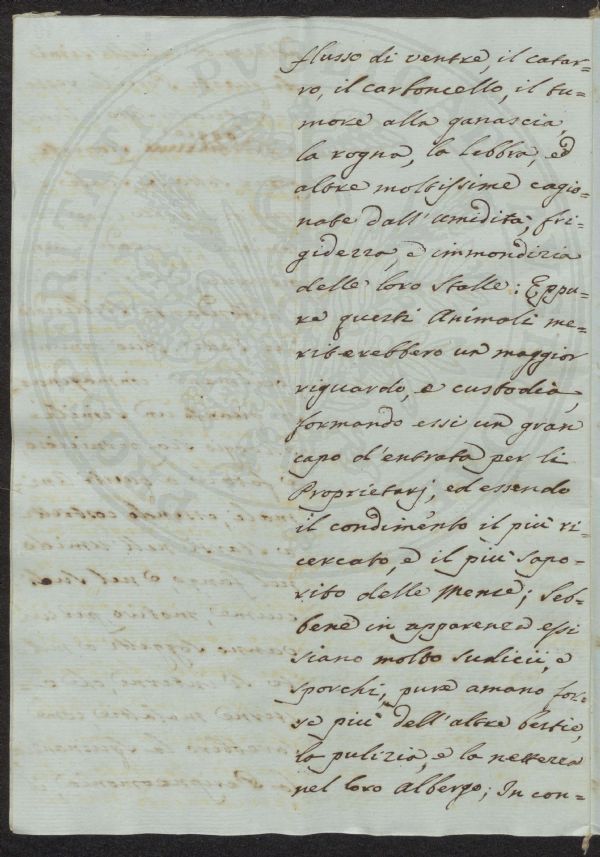 flusso di ventre, il catar=
ro, il carboncello, il tu=
more alla ganascia,
la rogna, la lebbra, ed
altre moltissime cagio=
nate dall'umidità, fri=
giderza, e immondizia
delle loro stalle: Eppu=
re questi Animali me=
riterebbero un maggior
riguardo, e custodia,
formando essi un gran
capo d'entrata per li
Proprietarj, ed essendo
il condimento il più ri=
cercato, e il più sapo=
rito delle mense; Seb=
bene in apparenza essi
siano molto sudicii, e
sporchi, pure amano for=
se più dell'altre bestie,
la pulizia, e la nettezza
nel loro Albergo; In con=